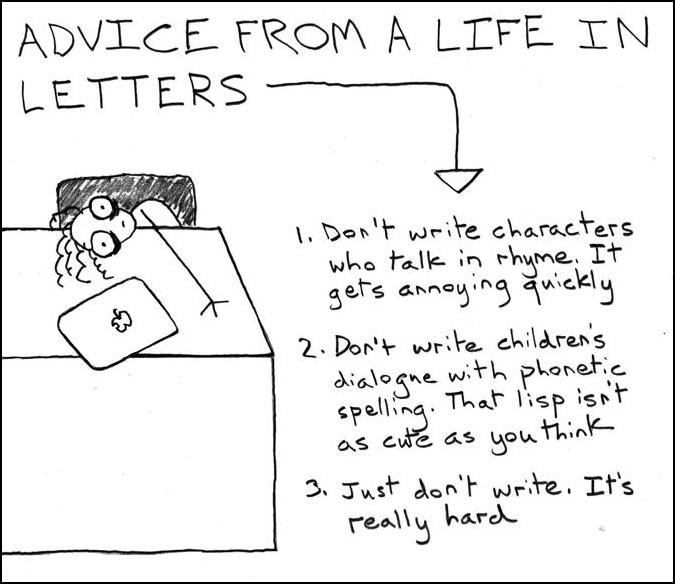 ADVICE FROM A LIFE IN
LETTERS
1. Don't write characters
who talk in rhyme. It
gets annoying quickly
2. Don't write children's
dialogue with phonetic
spelling. That lisp isn't
as cute as you think
3. Just don't write. It's
really hard